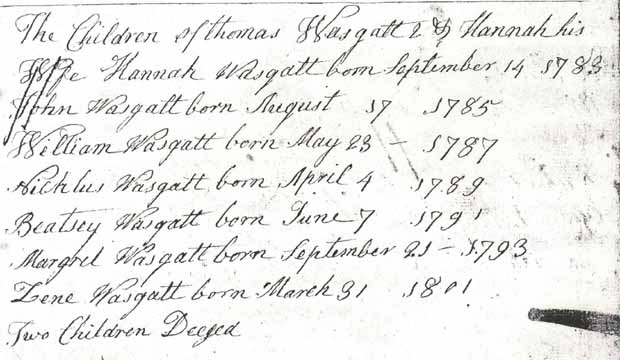 The Children of thomas Wasgatt 2 & Hannah his
Wife Hannah Wasgatt born September 14 1783
John Wasgatt born August 17 1785
William Wasgatt born May 23 - 1787
Nicklus Wasgatt born April 4 1789
Beatsey Wasgatt born June 7 1791
Margrel Wasgatt born September 21 - 1793
Zene Wasgatt born March 31 1801
Two Children Deeged